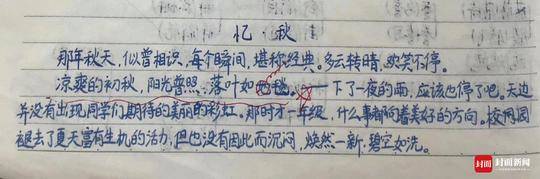 忆·秋
那年秋天，似曾相识，每个瞬间，堪称经典。多云转晴，欢笑不停。
凉爽的初秋，阳光普照，落叶如地毯。一下了一夜的雨，应该也停了吧。天边
并没有出现同学们期待的美丽的彩虹。那时才一年级，什么事都向着美好的方向。校园
褪去了夏天富有生机的活力，但也没有因此而沉闷，焕然一新，碧空如洗。
封面 封面新闻